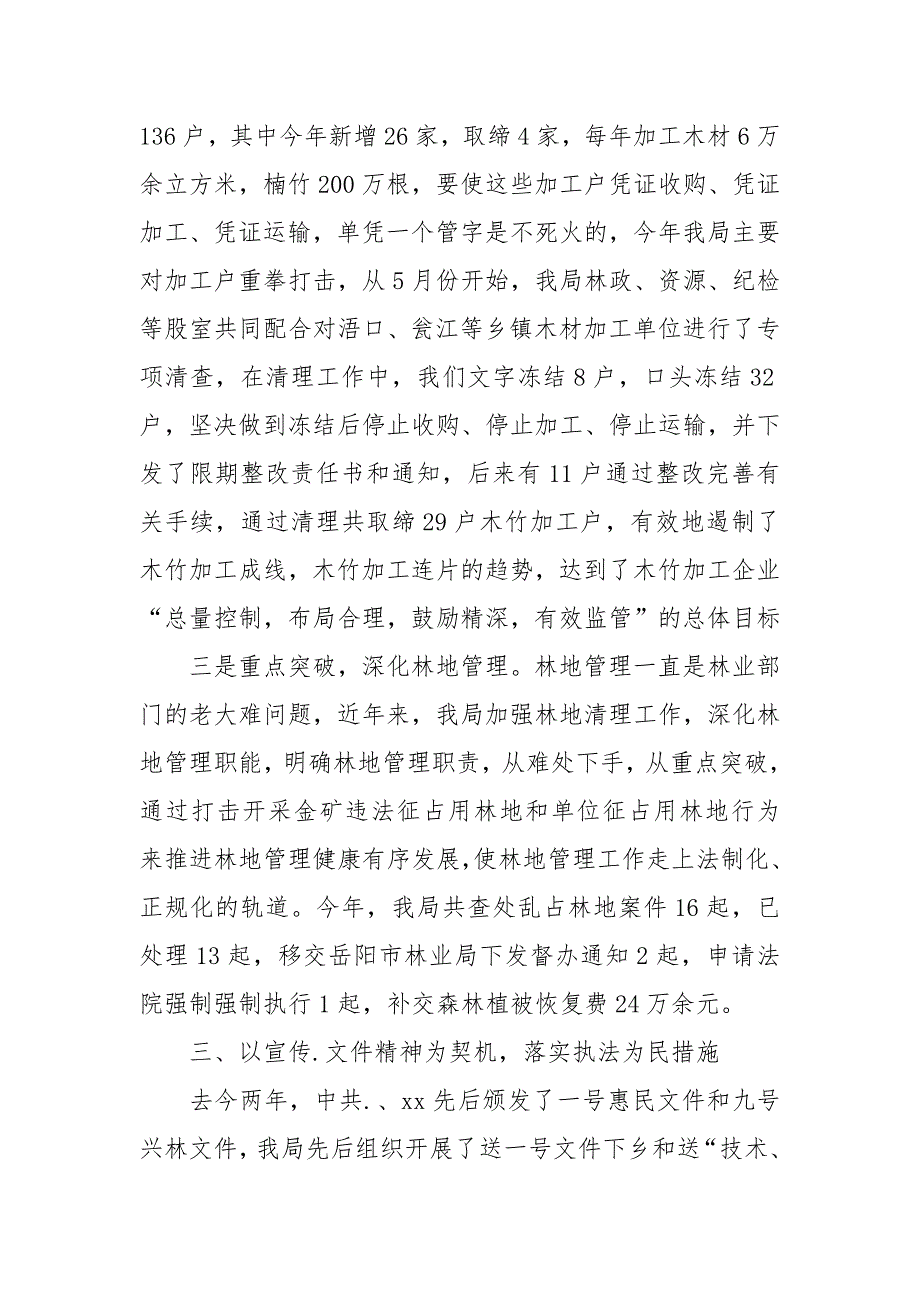 136 户，其中今年新增 26 家，取缔 4 家，每年加工木材 6 万
余立方米，楠竹 200 万根，要使这些加工户凭证收购、凭证
加工、凭证运输，单凭一个管字是不死火的，今年我局主要
对加工户重拳打击，从 5 月份开始，我局林政、资源、纪检
等股室共同配合对浯口、瓮江等乡镇木材加工单位进行了专
项清查，在清理工作中，我们文字冻结 8 户，口头冻结 32
户，坚决做到冻结后停止收购、停止加工、停止运输，并下
发了限期整改责任书和通知，后来有 11 户通过整改完善有
关手续，通过清理共取缔 29 户木竹加工户，有效地遏制了
木竹加工成线，木竹加工连片的趋势，达到了木竹加工企业
“总量控制，布局合理，鼓励精深，有效监管”的总体目标
三是重点突破，深化林地管理。林地管理一直是林业部
门的老大难问题，近年来，我局加强林地清理工作，深化林
地管理职能，明确林地管理职责，从难处下手，从重点突破，
通过打击开采金矿违法征占用林地和单位征占用林地行为
来推进林地管理健康有序发展，使林地管理工作走上法制化、
正规化的轨道。今年，我局共查处乱占林地案件 16 起，已
处理 13 起，移交岳阳市林业局下发督办通知 2 起，申请法
院强制强制执行 1 起，补交森林植被恢复费 24 万余元。
三、以宣传.文件精神为契机，落实执法为民措施
去今两年，中共.、xx 先后颁发了一号惠民文件和九号
兴林文件，我局先后组织开展了送一号文件下乡和送“技术、